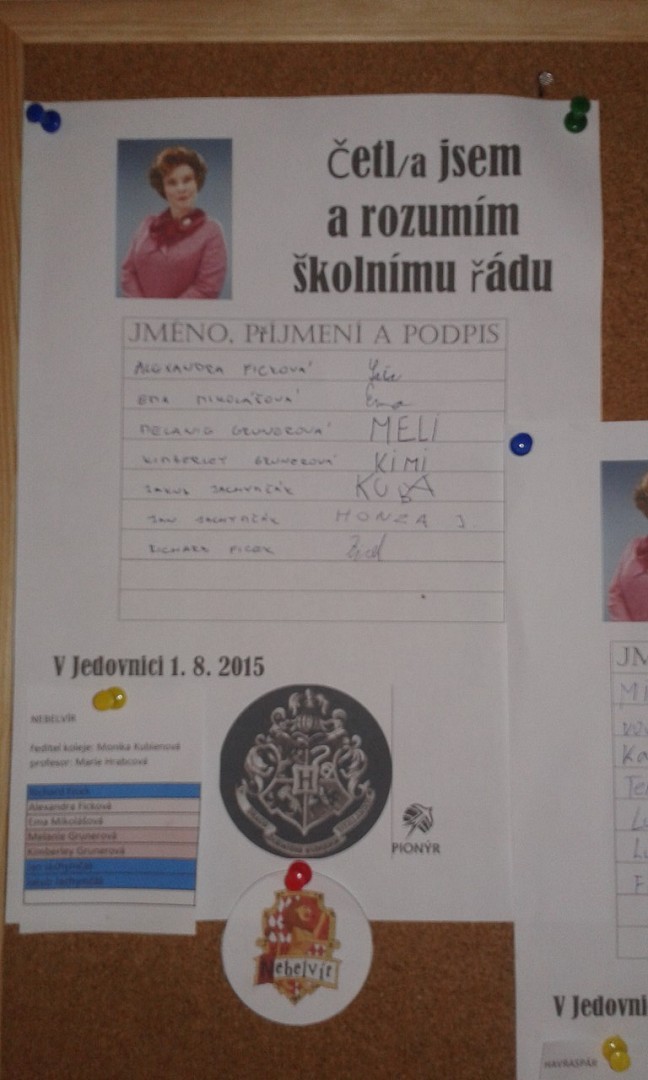 Četl/a jsem
a rozumím
školnímu řádu
JMÉNO, PŘÍJMENÍ A PODPIS
ALEXANDRA FICKOVÁ
EMA MIKOLÁŠOVÁ Ema
MELANIE GRUNEROVÁ MELI
KIMBERLEY GRUNEROVÁ KIMI
JAKUB JACHYMČÁK KUBA
JAN JACHYMČÁK HONZA J.
RICHARD FICEK
V Jedovnici 1. 8. 2015
NEBELVÍR
ředitel koleje: Monika Kubienová
profesor: Marie Hrabcová
Richard Ficek
Alexandra Ficková
Ema Mikolášová
Melanie Grunerová
Kimberley Grunerová
Jan Jachymčák
Jakub Jachymčák
H
PIONÝR
Nebelvír
JM
Mi
Ka
Te
Lu
Lu
F
V Jedovni
HAVRASPÁR